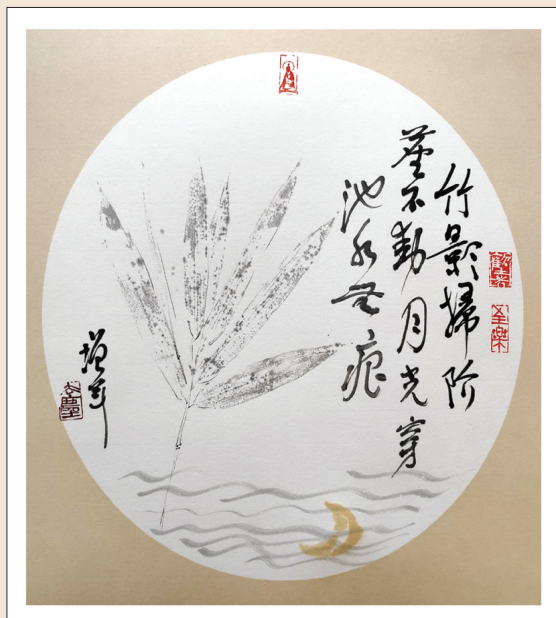 竹影掃阶
塵不動月光穿
池水無痕
歡喜